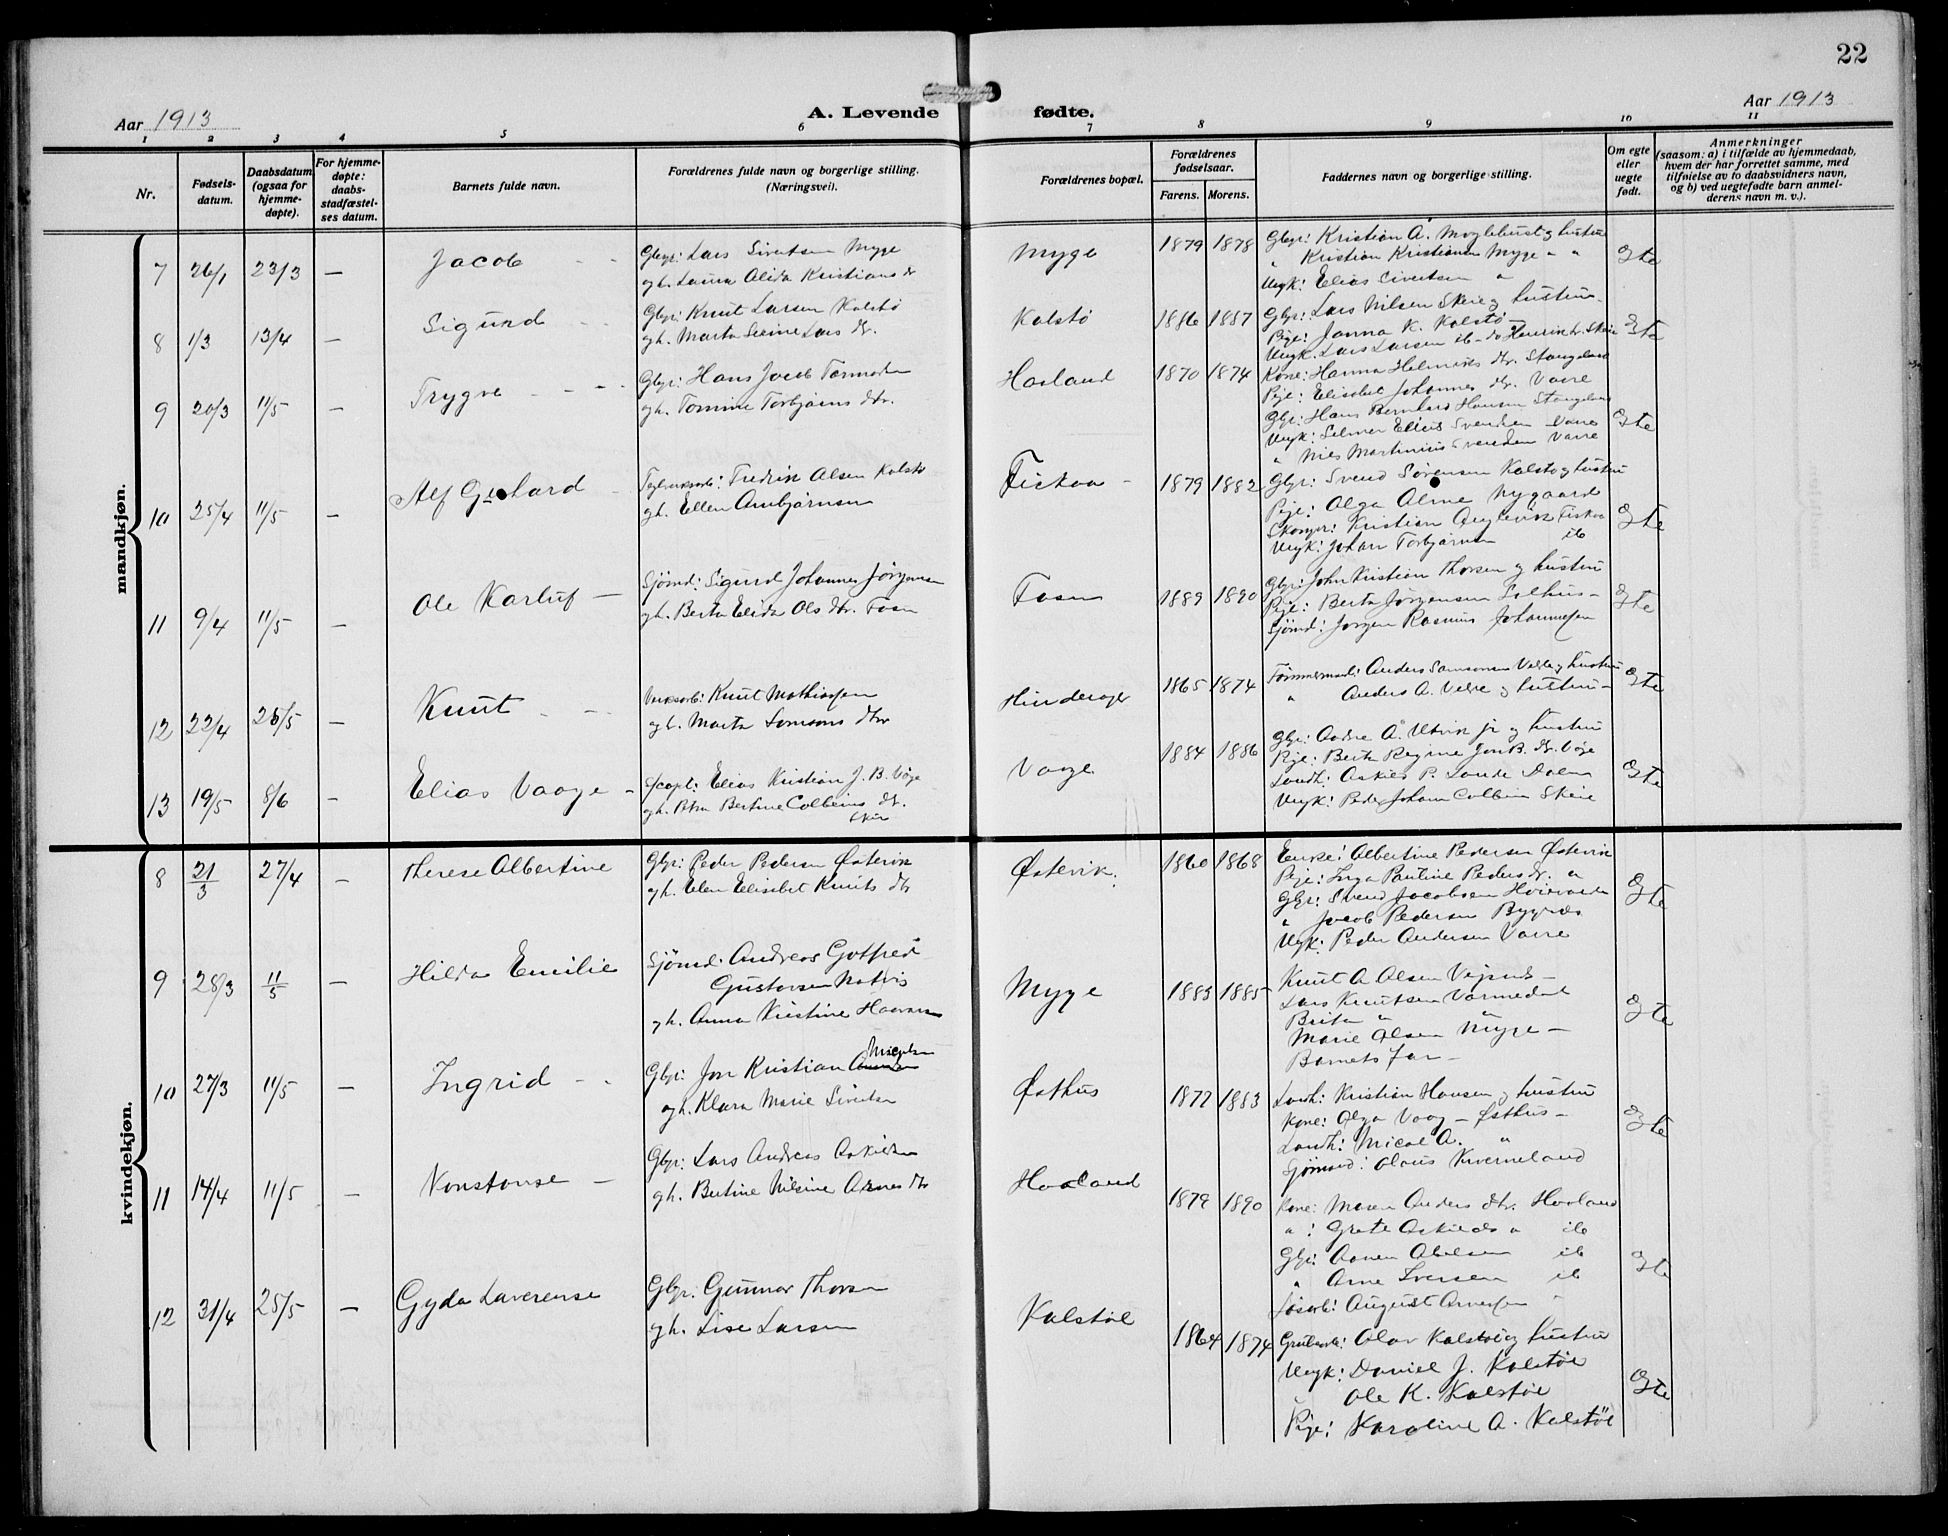 22
Aar 1913
A. Levende fødte.
Aar 1913
1 2 3 4 5 6 7 8 9 10 11
Nr.
Fødsels-
datum.
Daabsdatum
(ogsaa for
hjemme-
døpte).
For hjemme-
døpte:
daabs-
stadfæstel-
ses datum.
Barnets fulde navn.
Forældrenes fulde navn og borgerlige stilling.
(Næringsvei).
Forældrenes bopæl.
Forældrenes
fødselsaar.
Farens. Morens.
Faddernes navn og borgerlige stilling.
Om egte
eller
uegte
født.
Anmerkninger
(saasom: a) i tilfælde av hjemmedaab,
hvem der har forrettet samme, med
tilføielse av to daabsvidners navn,
og b) ved uegtefødte barn anmel-
derens navn m. v.).
mandkjøn.
7 26/1 23/3 — Jacob
Gbgr: Lars Sivertsen Myge
gh. Laura Alida Kristians dr
Myge 1879 1878
Gbgr: Kristian A. hustru
" Kristian Kristiansen Myge " "
Ungk: Elias Sivertsen "
Egte
8 1/3 13/4 — Sigund
Gbgr: Knut Larsen Kalstø
gh. Marta Serine Lars dr.
Kalstø 1886 1887
Gbgr: Lars Nilsen Skeie og hustru
Pige: Janna K. Kalstø
Ungk. Lars Larsen ib - do Henrik Skeie
Egte
9 20/3 11/5 — Trygve
Gbgr: Hans Jacob Tormodsen
gh. Tomine Torbjørns dtr.
Haaland 1870 1874
Kone: Hanna Helmiks dtr. Stangeland
Pige: Elisabet Johannes dtr. Varre
Gbgr: Hans Bernhard Hansen Stangeland
Ungk: Selmer Elius Svendsen Varre
" Nils Martinius Svendsen Varre
Egte
10 25/4 11/5 — Alf Gerhard
Fredrik Olsen Kalstø
gh. Ellen Anbjørnsen
Fiskaa 1879 1882
Gbgr: Svend Sørensen Kalstø og hustru
Pige: Olga Alme Nygaard
Kristian Fiskaa
Ungk: Johan Torbjørnsen ib
Egte
11 9/4 11/5 — Ole Karluf
Sjømd: Sigurd Johannes Jørgensen
gh. Berta Elida Ols dtr. Fosn
Fosen 1889 1890
Gbgr: John Kristian Thorsen og hustru
Pige: Berta Jørgensen Solhus
Sjømd: Jørgen Rasmus Johannesen
Egte
12 22/4 25/5 — Knut
Knut Mathiasen
gh. Marta Samsons dtr
Hinderager 1865 1874
Tømmermand: Anders Samsonsen Velde og hustru
" Anders A. Velde og hustru
Egte
13 19/5 8/6 — Elias Vaage
Elias Kristian J. B. Våge
gh. Petra Bertine Colbeins dr.
Skeie
Vaage 1884 1886
Gbgr: Andre A. Utvik jr og hustru
Pige: Berta Regine Jon B. dr. Våge
Landh: Askies P. Lande Dalen
Ungk: Peder Johan Colbein Skeie
Egte
kvindekjøn.
8 21/3 27/4 — Therese Albertine
Gbgr: Peder Pedersen Østevik
gh. Elen Elisabet Knuts dtr
Østevik. 1860 1868
Enke: Albertine Pedersen Østevik
Pige: Inga Pauline Peders dr. "
Gbgr: Svend Jacobsen
" Jacob Pedersen Bygnes
Ungk: Peder Andersen Varre
Egte
9 28/3 11/5 — Hilda Emilie
Sjømd. Andreas Gotfred
Gustavsen
gh. Anna Kristine Haavarsen
Myge 1883 1885
Knut A Olsen
Lars Knutsen Varmedal
Brita " "
Marie Olsen Myge —
Barnets far —
Egte
10 27/3 11/5 — Ingrid
Gbgr: Jon Kristian
gh. Klara Marie Sivertsen
Østhus 1872 1883
Landh: Kristian Hansen og hustru
Kone: Olga Vaag — Østhus —
Landh: Micael A. "
Sjømand: Olaus Kverneland
Egte
11 14/4 11/5 — Konstanse —
Gbgr: Lars Andreas Askildsen
gh. Bertine Nilsine Arnes dtr
Haaland 1879 1890
Kone: Maren Anders dtr. Haaland
" : Grete Askilds " ib
Gbgr: Aanen Abelsen ib
" Arne Iversen ib
Løsarb: August Arnesen "
Egte
12 31/4 25/5 — Gyda Laverense
Gbgr. Gunnar Thorsen
gh. Lise Larsen
Kalstøl 1864 1874
Grubearb: Olav Kalstøl og hustru
Ungk: Daniel J. Kalstøl
" Ole K. Kalstøl
Pige: Karoline A. Kalstøl
Egte